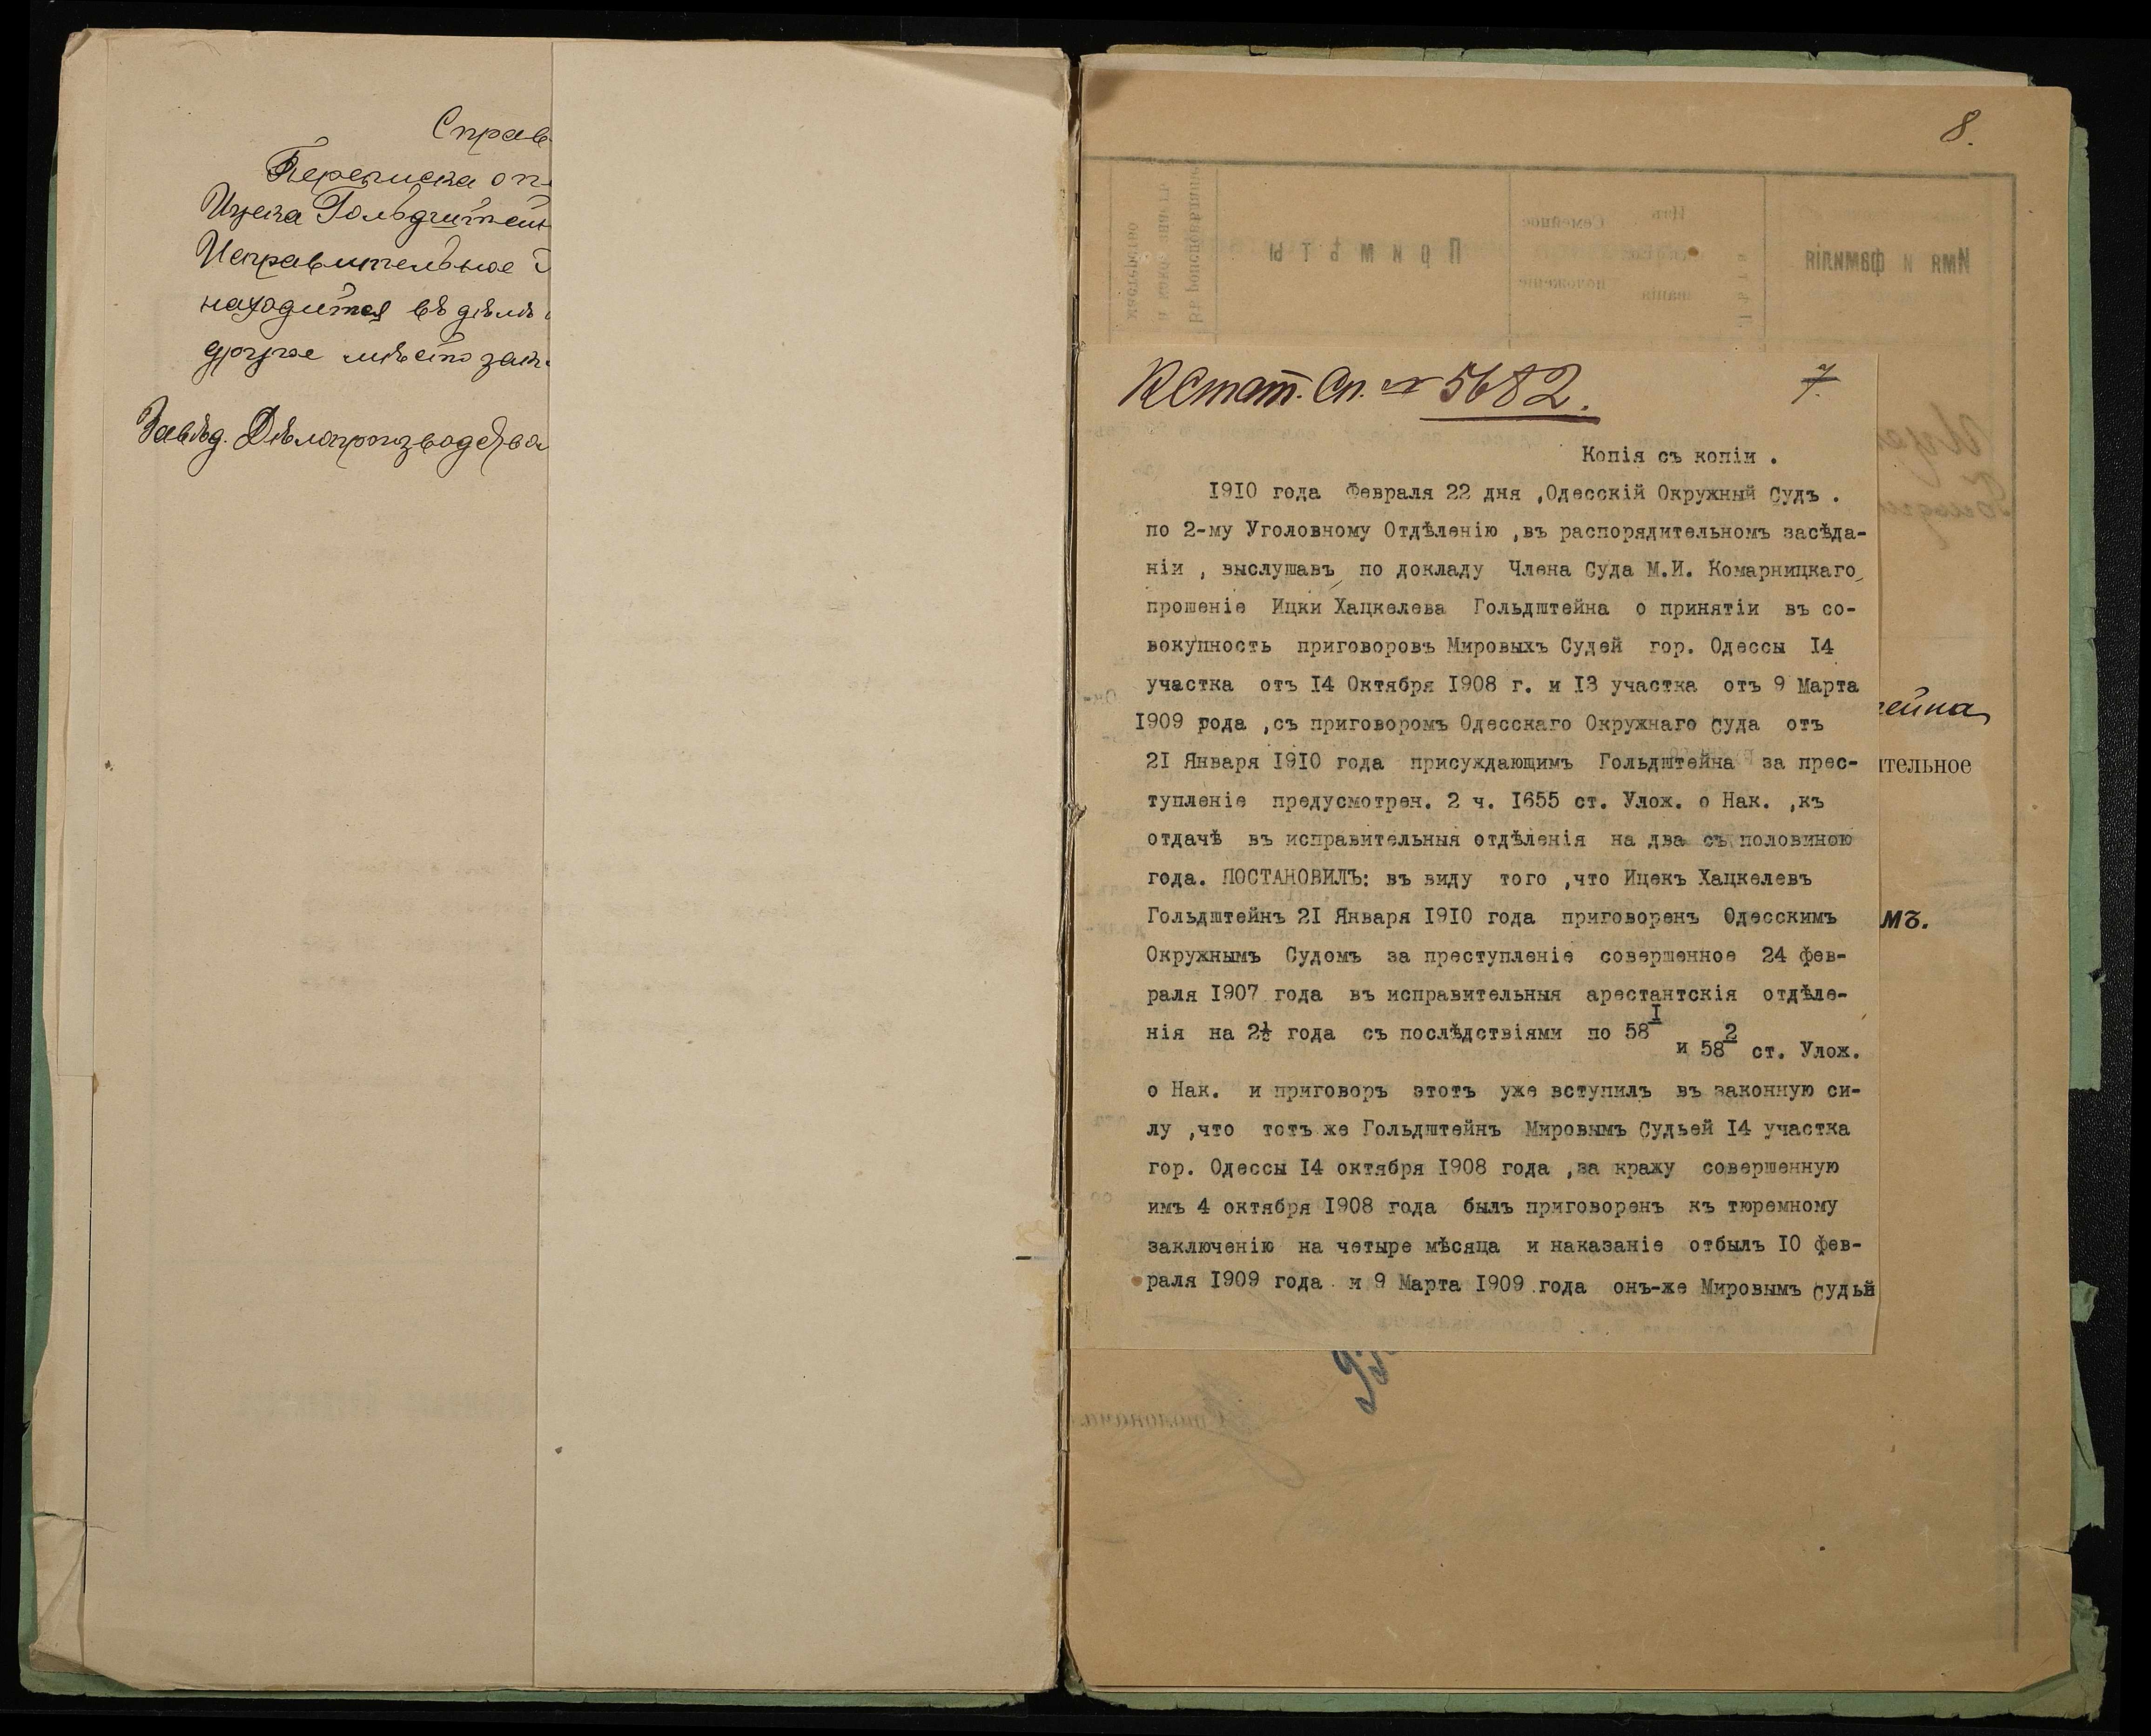 Справ
Переписка о п
Ицека Гольдштейн
Исправительное
находится въ дѣлѣ
другое мѣсто зак
Завѣд. Дѣлопроизводства
8.
Имя и фамилія
Семейное
положеніе
Примѣты
К Стат. Сп. № 5682.
7.
Копія съ копіи .
1910 года Февраля 22 дня ,Одесскій Окружный Судъ .
по 2-му Уголовному Отдѣленію ,въ распорядительномъ засѣда-
ніи , выслушавъ, по докладу Члена Суда М.И. Комарницкаго,
прошеніе Ицки Хацкелева Гольдштейна о принятіи въ со-
вокупность приговоровъ Мировыхъ Судей гор. Одессы 14
участка отъ 14 Октября 1908 г. и 13 участка отъ 9 Марта
1909 года ,съ приговоромъ Одесскаго Окружнаго Суда отъ
21 Января 1910 года присуждающимъ Гольдштейна за прес-
тупленіе предусмотрен. 2 ч. 1655 ст. Улож. о Нак. ,къ
отдачѣ въ исправительныя отдѣленія на два съ половиною
года. ПОСТАНОВИЛЪ: въ виду того ,что Ицекъ Хацкелевъ
Гольдштейнъ 21 Января 1910 года приговоренъ Одесскимъ
Окружнымъ Судомъ за преступленіе совершенное 24 фев-
раля 1907 года въ исправительныя арестантскія отдѣле-
нія на 2½ года съ послѣдствіями по 58 I и 58 2 ст. Улож.
о Нак. и приговоръ этотъ уже вступилъ въ законную си-
лу ,что тотъ же Гольдштейнъ Мировымъ Судьей 14 участка
гор. Одессы 14 октября 1908 года ,за кражу совершенную
имъ 4 октября 1908 года былъ приговоренъ къ тюремному
заключенію на четыре мѣсяца и наказаніе отбылъ 10 фев-
раля 1909 года и 9 Марта 1909 года онъ-же Мировымъ Судьй
ейна
ительное
мъ.